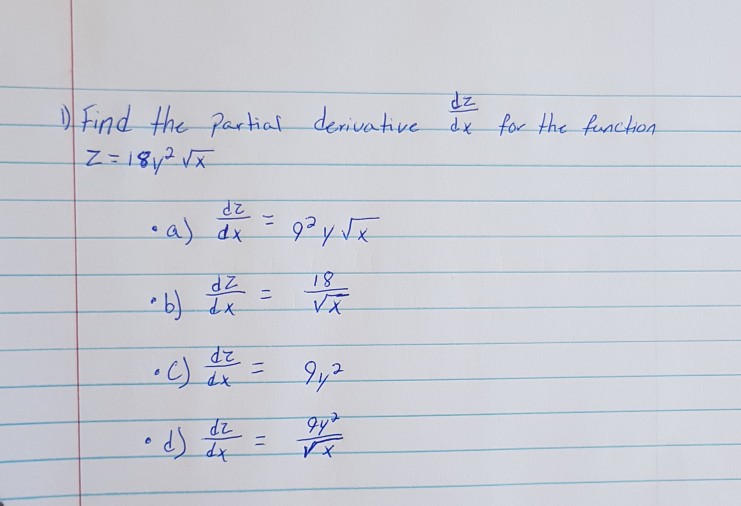 1) Find the partial derivative dz/dx for the function
z = 18y² √x
• a) dz/dx = 9²y√x
• b) dz/dx = 18/√x
• c) dz/dx = 9y²
• d) dz/dx = 9y²/√x